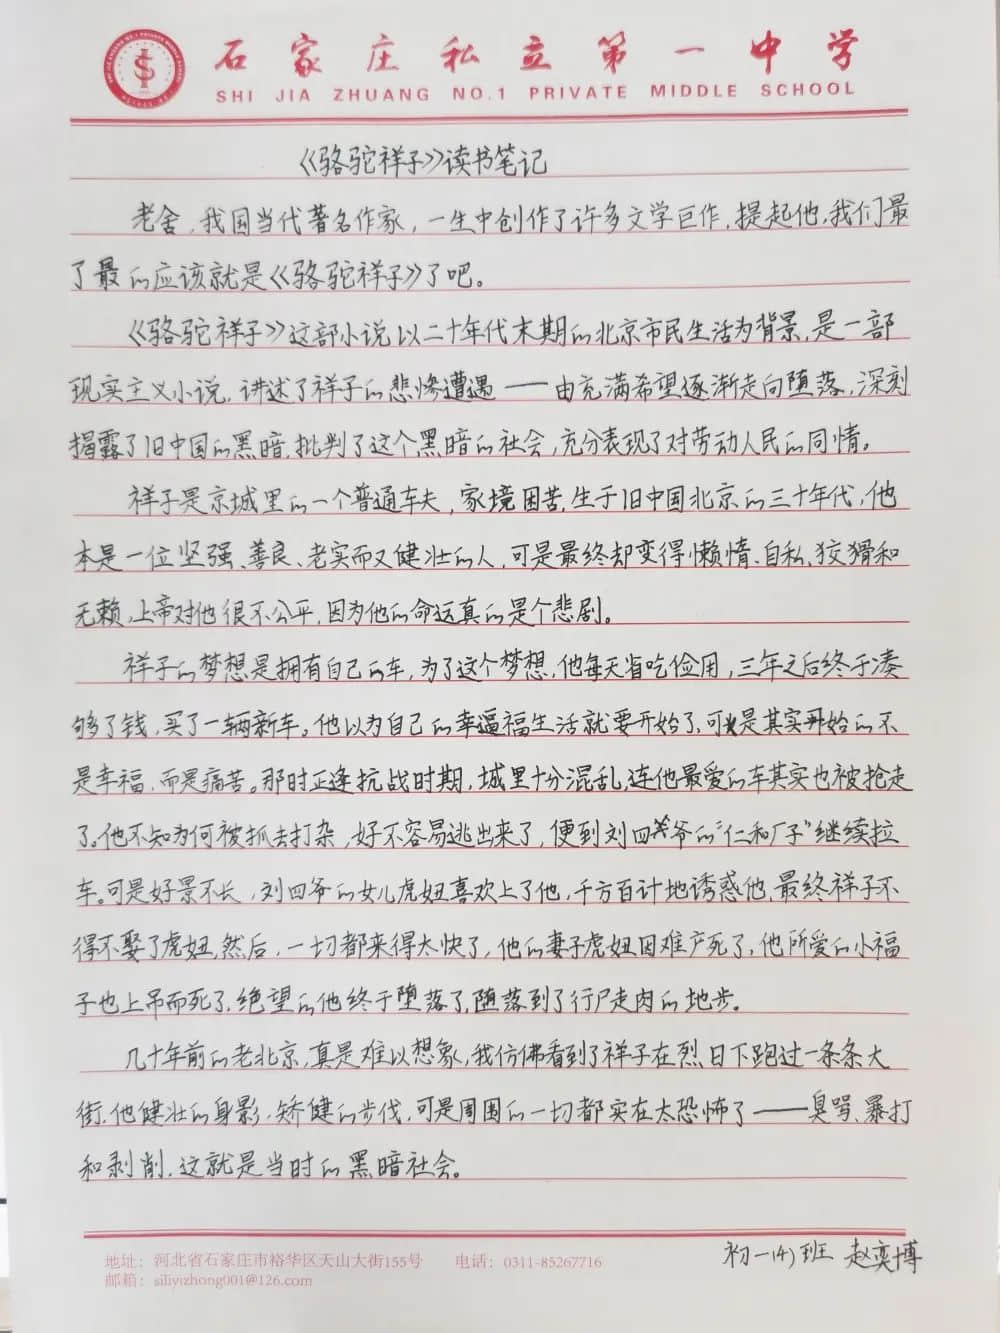 石家庄私立第一中学
SHI JIA ZHUANG NO.1 PRIVATE MIDDLE SCHOOL
《骆驼祥子》读书笔记
老舍，我国当代著名作家，一生中创作了许多文学巨作，提起他，我们最
了最的应该就是《骆驼祥子》了吧。
《骆驼祥子》这部小说以二十年代末期的北京市民生活为背景，是一部
现实主义小说，讲述了祥子的悲惨遭遇——由充满希望逐渐走向堕落，深刻
揭露了旧中国的黑暗，批判了这个黑暗的社会，充分表现了对劳动人民的同情。
祥子是京城里的一个普通车夫，家境困苦，生于旧中国北京的三十年代，他
本是一位坚强、善良、老实而又健壮的人，可是最终却变得懒惰、自私、狡猾和
无赖，上帝对他很不公平，因为他的命运真的是个悲剧。
祥子的梦想是拥有自己的车，为了这个梦想，他每天省吃俭用，三年之后终于凑
够了钱，买了一辆新车。他以为自己的幸福生活就要开始了，可是其实开始的不
是幸福，而是痛苦。那时正逢抗战时期，城里十分混乱，连他最爱的车其实也被抢走
了。他不知为何被抓去打杂，好不容易逃出来了，便到刘四爷的“仁和厂子”继续拉
车。可是好景不长，刘四爷的女儿虎妞喜欢上了他，千方百计地诱惑他，最终祥子不
得不娶了虎妞，然后，一切都来得太快了，他的妻子虎妞因难产死了，他所爱的小福
子也上吊而死了，绝望的他终于堕落了，堕落到了行尸走肉的地步。
几十年前的老北京，真是难以想象，我仿佛看到了祥子在烈日下跑过一条条大
街，他健壮的身影，矫健的步伐，可是周围的一切都实在太恐怖了——臭骂、暴打
和剥削，这就是当时的黑暗社会。
地址：河北省石家庄市裕华区天山大街155号 电话：0311-85267716
邮箱：siliyizhong001@126.com
初一(4)班 赵奕博